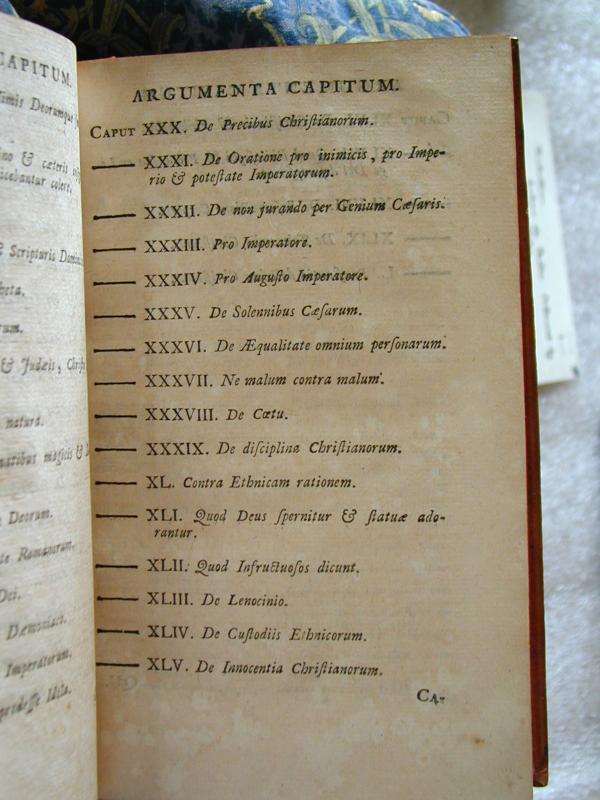 CAPITUM.
Deorumque
& cæteris
cebantur colere,
& Scripturis
& Judæis,
natura.
magicis &
Deorum.
Romanorum.
Dei.
Dæmoniaco.
Imperatorum.
ARGUMENTA CAPITUM.
CAPUT XXX. De Precibus Chriſtianorum.
—— XXXI. De Oratione pro inimicis, pro Impe-
rio & poteſtate Imperatorum.
—— XXXII. De non jurando per Genium Cæſaris.
—— XXXIII. Pro Imperatore.
—— XXXIV. Pro Auguſto Imperatore.
—— XXXV. De Solennibus Cæſarum.
—— XXXVI. De Æqualitate omnium perſonarum.
—— XXXVII. Ne malum contra malum.
—— XXXVIII. De Cœtu.
—— XXXIX. De diſciplina Chriſtianorum.
—— XL. Contra Ethnicam rationem.
—— XLI. Quod Deus ſpernitur & ſtatuæ ado-
rantur.
—— XLII. Quod Infructuoſos dicunt.
—— XLIII. De Lenocinio.
—— XLIV. De Cuſtodiis Ethnicorum.
—— XLV. De Innocentia Chriſtianorum.
CA-